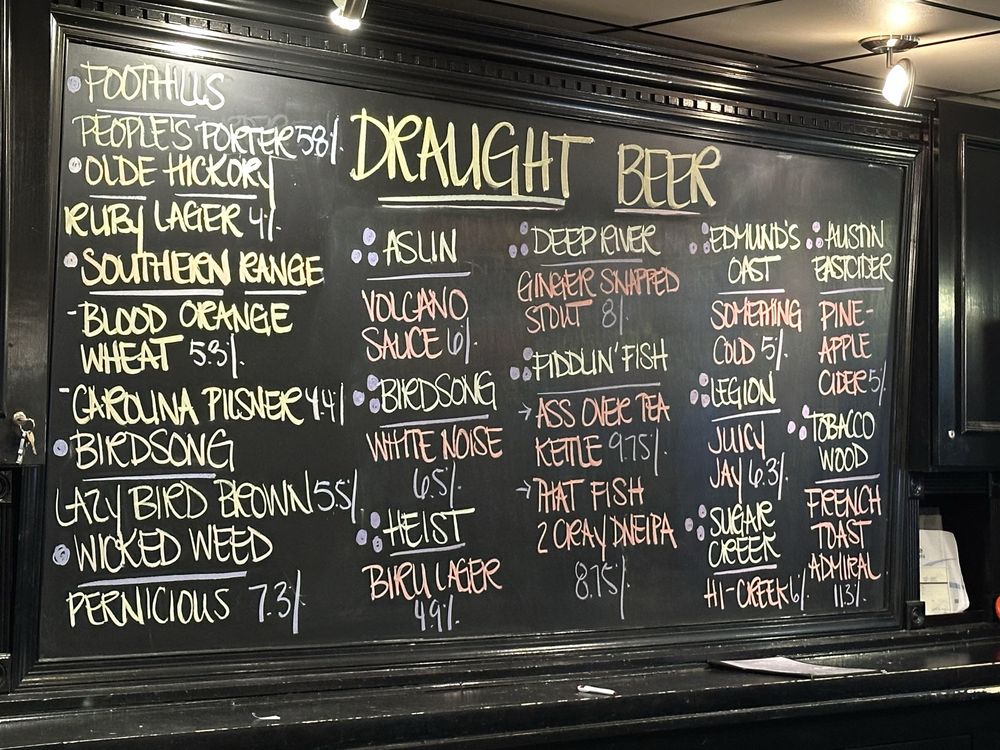 DRAUGHT BEER
FOOTHILLS
PEOPLE'S PORTER 5.8%
OLDE HICKORY
RUBY LAGER 4%
SOUTHERN RANGE
-BLOOD ORANGE
WHEAT 5.3%
-CAROLINA PILSNER 4.4%
BIRDSONG
LAZY BIRD BROWN 5.5%
WICKED WEED
PERNICIOUS 7.3%
ASLIN
VOLCANO
SAUCE 6%
BIRDSONG
WHITE NOISE
6.5%
HEIST
BIRU LAGER
4.9%
DEEP RIVER
GINGER SNAPPED
STOUT 8%
FIDDLIN' FISH
→ASS OVER TEA
KETTLE 9.75%
→PHAT FISH
2 CRAY DNEIPA
8.75%
EDMUND'S
OAST
SOMETHING
COLD 5%
LEGION
JUICY
JAY 6.3%
SUGAR
CREEK
HI-CREEK 6%
AUSTIN
EASTCIDER
PINE-
APPLE
CIDER 5%
TOBACCO
WOOD
FRENCH
TOAST
ADMIRAL
11.3%